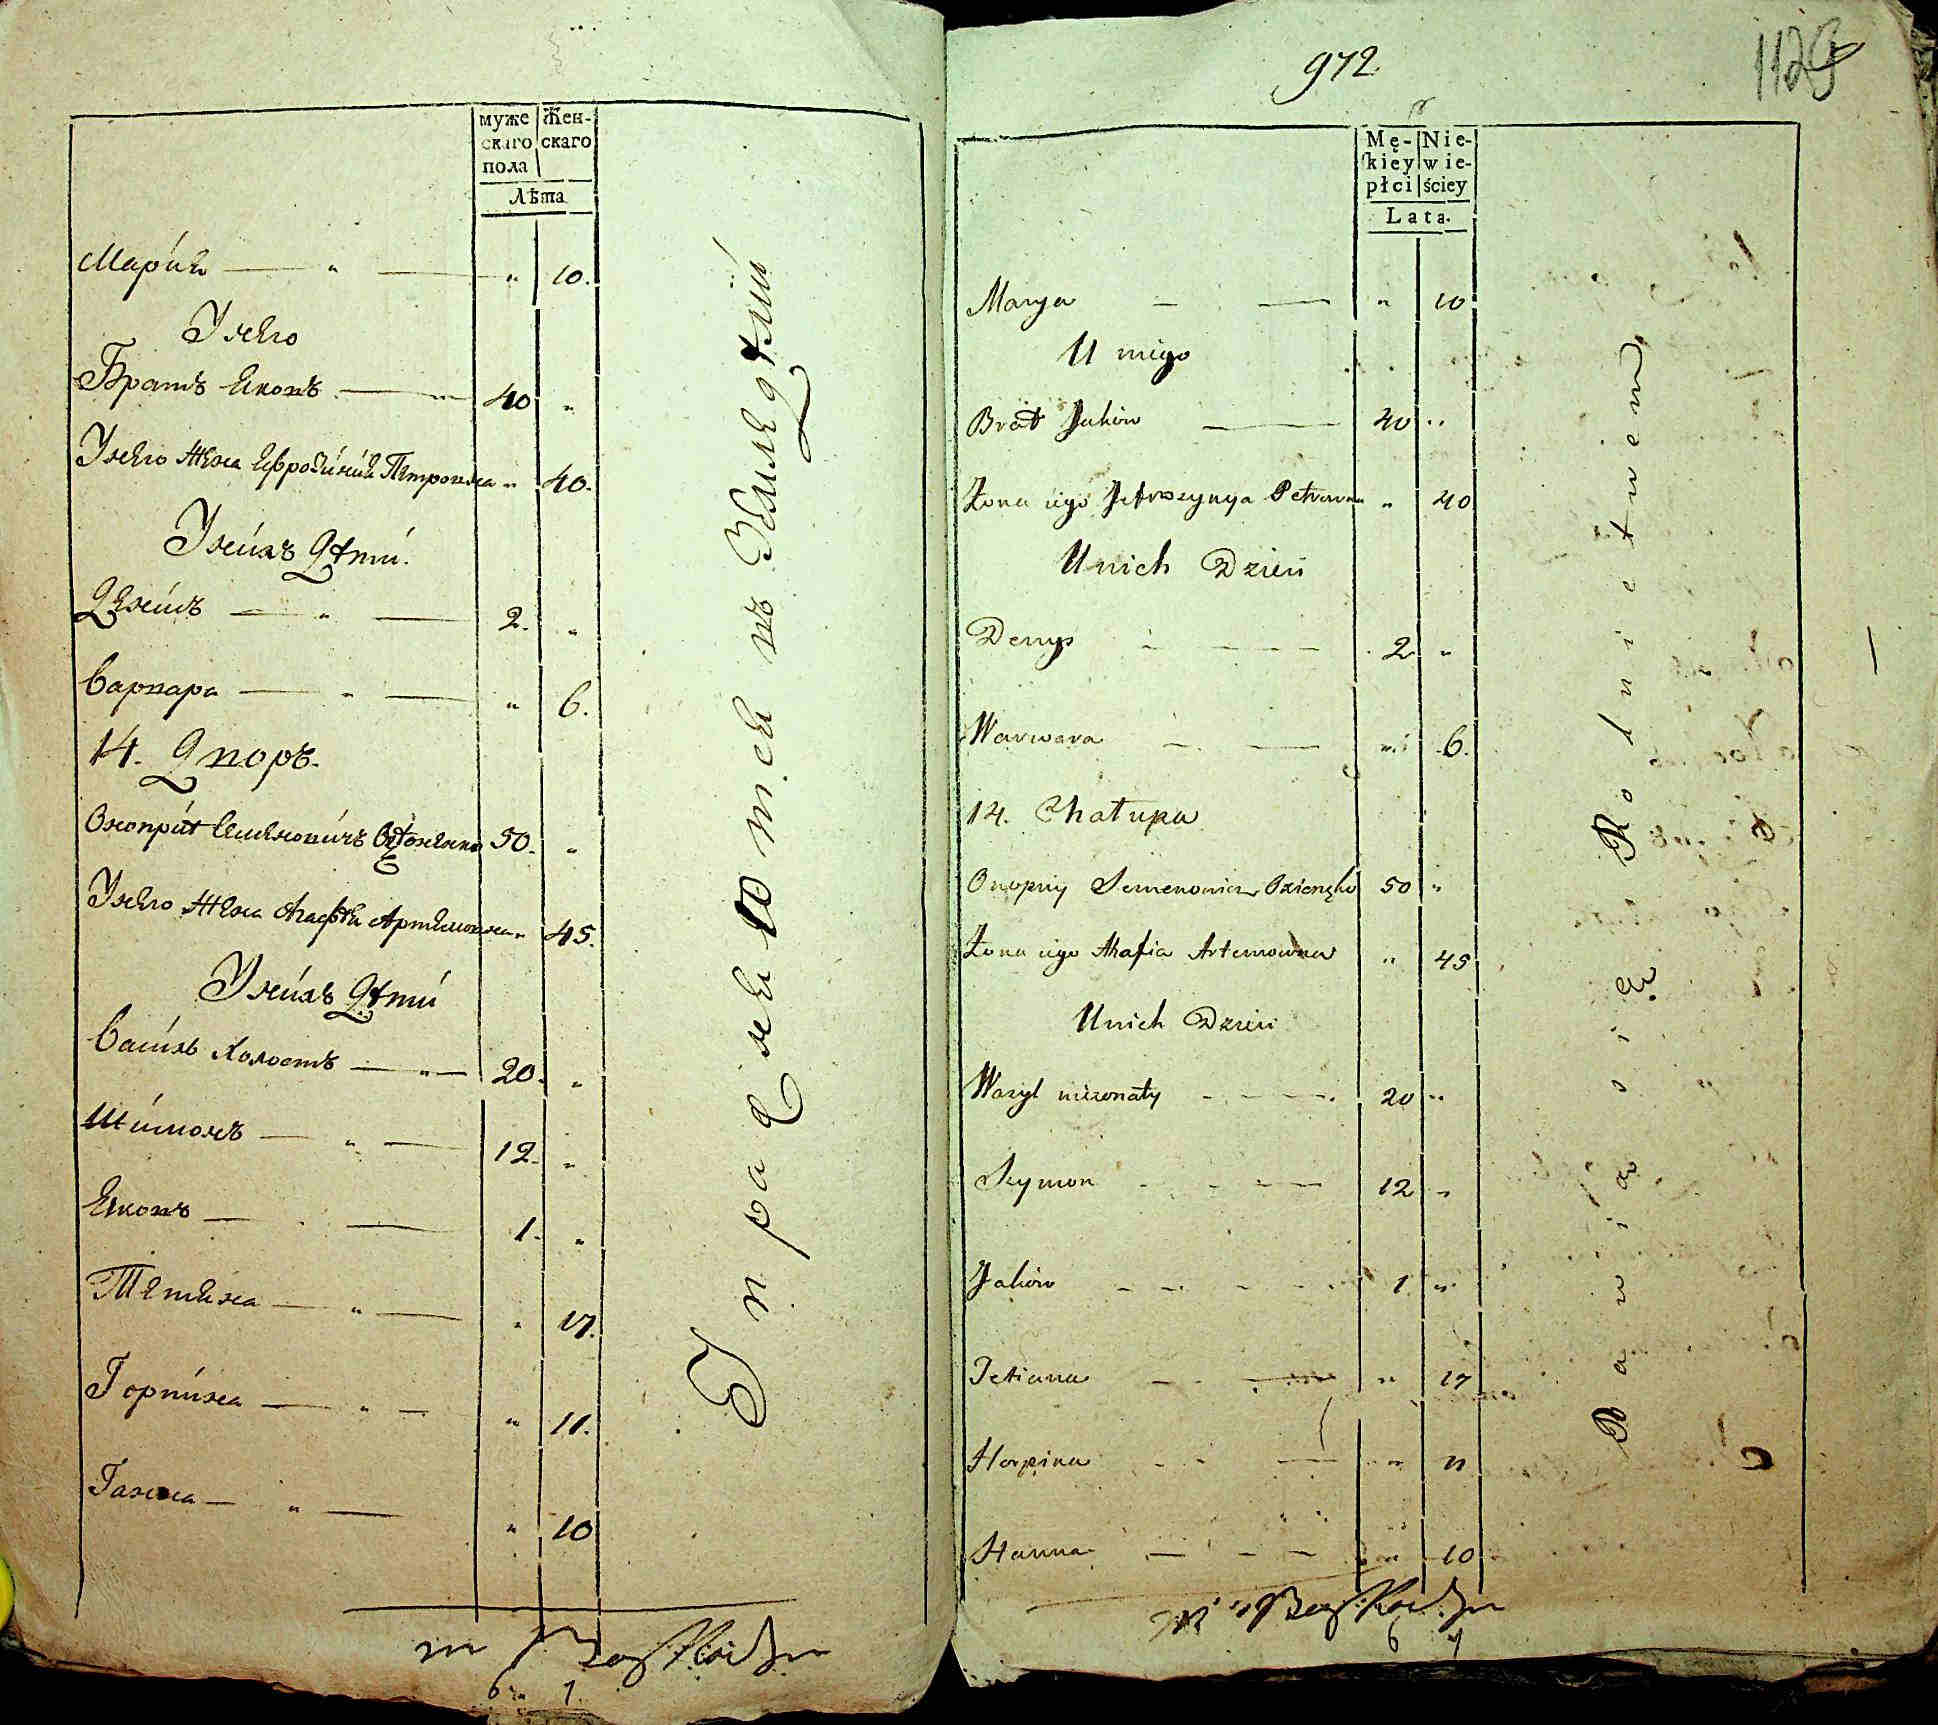 муже
скаго
пола
Жен-
скаго
Лѣта
Марія " " 10.
У него
Братъ Яковъ 40 "
У него жена Ефросинія Петровна " 40.
У нихъ дѣти.
Денисъ " 2. "
Варвара " " 6.
14. Дворъ.
Оноприй Семеновичъ 50. "
У него жена Агафія Артемовна " 45.
У нихъ дѣти
Василь холостъ " 20. "
Шимонъ " 12. "
Яковъ 1. "
Тетяна " " 17.
Горпина " " 11.
Ганна " " 10
Упражняются въ Земледѣлій
6 7
972
1129
Mę-
skiey
płci
Nie-
wie-
ściey
Lata.
Marya " 10
U niego
Brat Jakow 40 "
Żona iego Jefroszynya Petrowna " 40
U nich Dzieci
Denys 2 "
Warwara " 6.
14. Chałupa
Onopriy Semenowicz 50 "
Żona iego Ahafia Artemowna " 45
U nich Dzieci
Wasyl nieżonaty 20 "
Szymon 12 "
Jakow 1 "
Tetiana " 17
Horpina " 11
Hanna " 10
Bawią się Rolnictwem
6 7